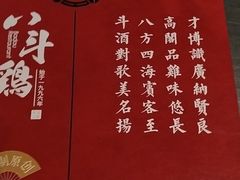 才博識廣納賢良
高閣品雞味悠長
八方四海賓客至
斗酒對歌美名揚
八斗鷄
始于一九九六年
原创